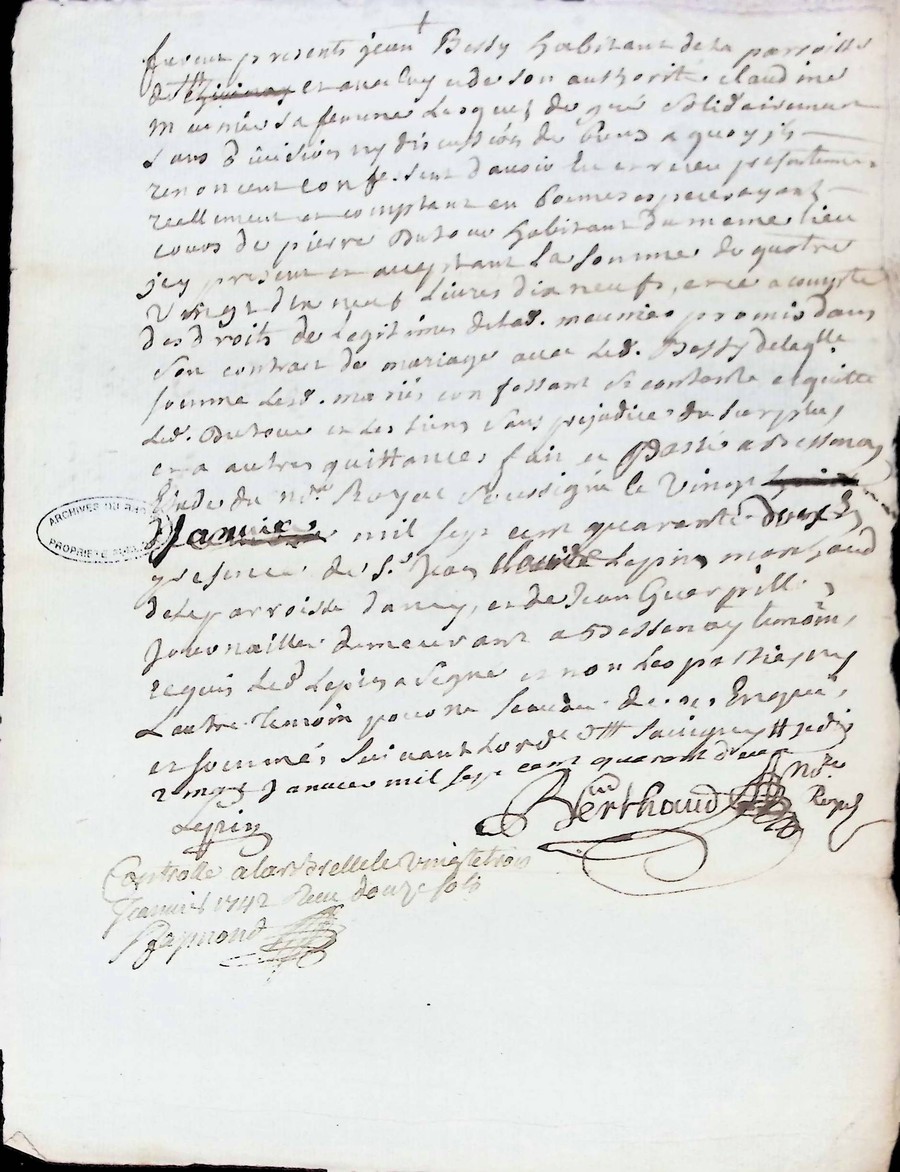 furent presents jean Bessy habitant de la parroisse
de Thurins et avec luy et de son authorité claudine
meunier sa femme lesquels de gré solidairement
sans division ny discussion de biens a quoy ils
renoncent confessent d'avoir eu et receu presentement
reellement et comptant en bonnes especes ayant
cours de pierre Dutour habitant du meme lieu
jcy present et acceptant La somme de quatre
vingt dix neuf Livres dix neufs, et ce a compte
des droits de Legitimes de lad. meunier promis dans
son contract de mariage avec led. Bessy de laqlle
somme Lesd. mariés confessant se contente et quitte
Led. Dutour et les siens sans prejudice du surplus
et a autres quittances fait et Passé a Bessenay
Etude du nre Royal soussigné le vingt
Janvier mil sept cent quarante deux En
presence de Sr Jean Claude Lepin marchand
de la parroisse dancy, et de Jean Guerpill
Journallier demeurant a Bessenay temoins
requis Led Lepin a signé et non les parties ny
L'autre temoin pour ne scavoir de ce Enquis
et sommés suivant Lord.
Janvier mil sept cent quarante deux
Lepin
Berthaud nre
Royal
Controllé a larbrelle le vingt et trois
Janvier 1742 Receu douze sols
Raymond
ARCHIVES DU
PROPRIETE